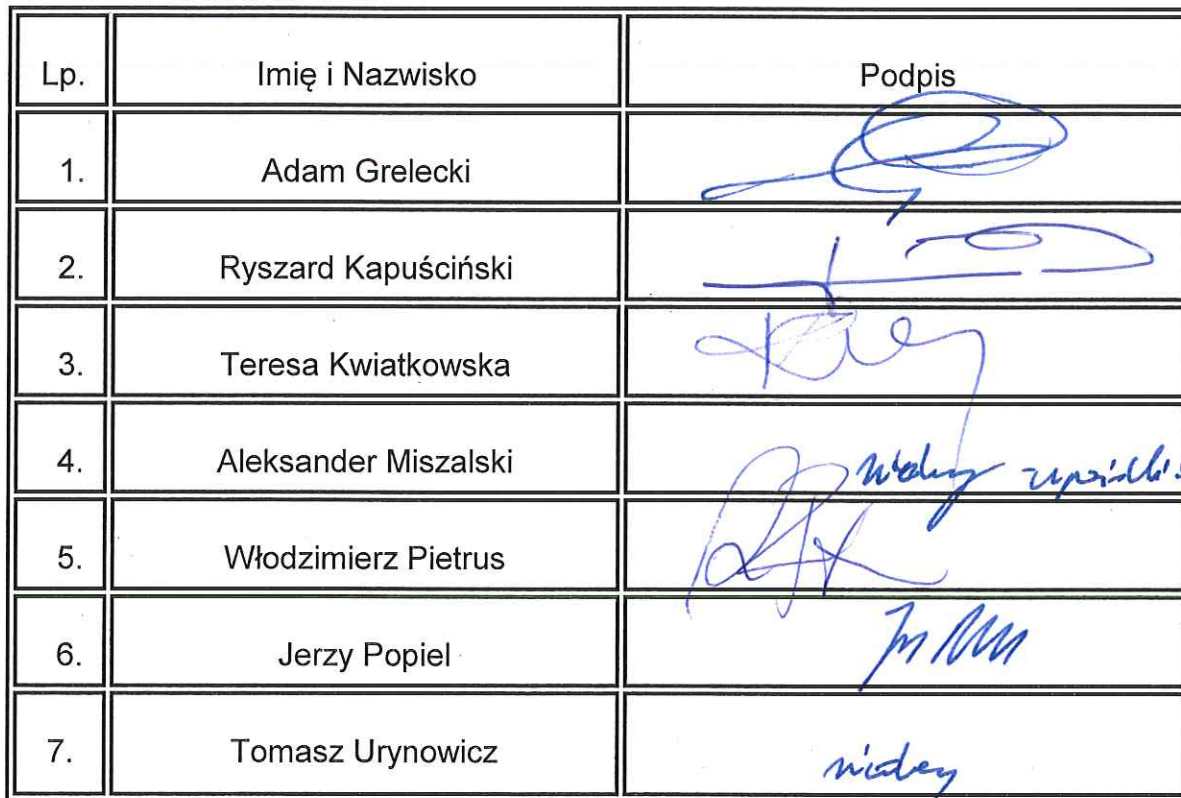 Lp. Imię i Nazwisko Podpis
1. Adam Grelecki
2. Ryszard Kapuściński
3. Teresa Kwiatkowska
4. Aleksander Miszalski
5. Włodzimierz Pietrus
6. Jerzy Popiel
7. Tomasz Urynowicz